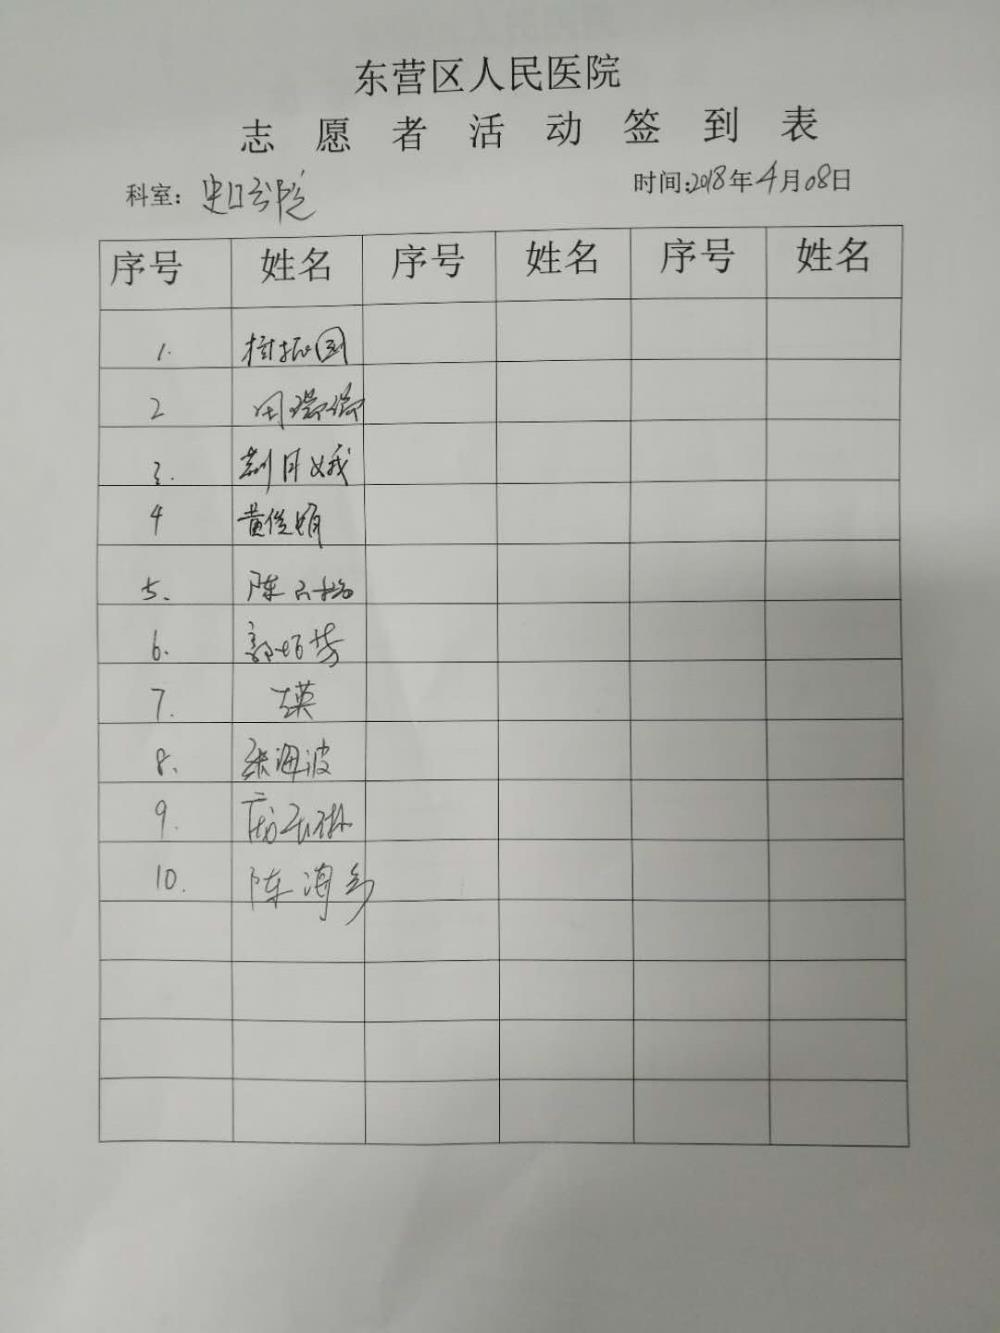 东营区人民医院
志愿者活动签到表
科室: 史口分院 时间:2018年4月08日
序号 姓名 序号 姓名 序号 姓名
1. 树振国
2 田瑞瑞
3. 刘月娥
4 黄俊娟
5. 陈
6. 郭娟芳
7. 英
8. 张海波
9.
10. 陈海乡